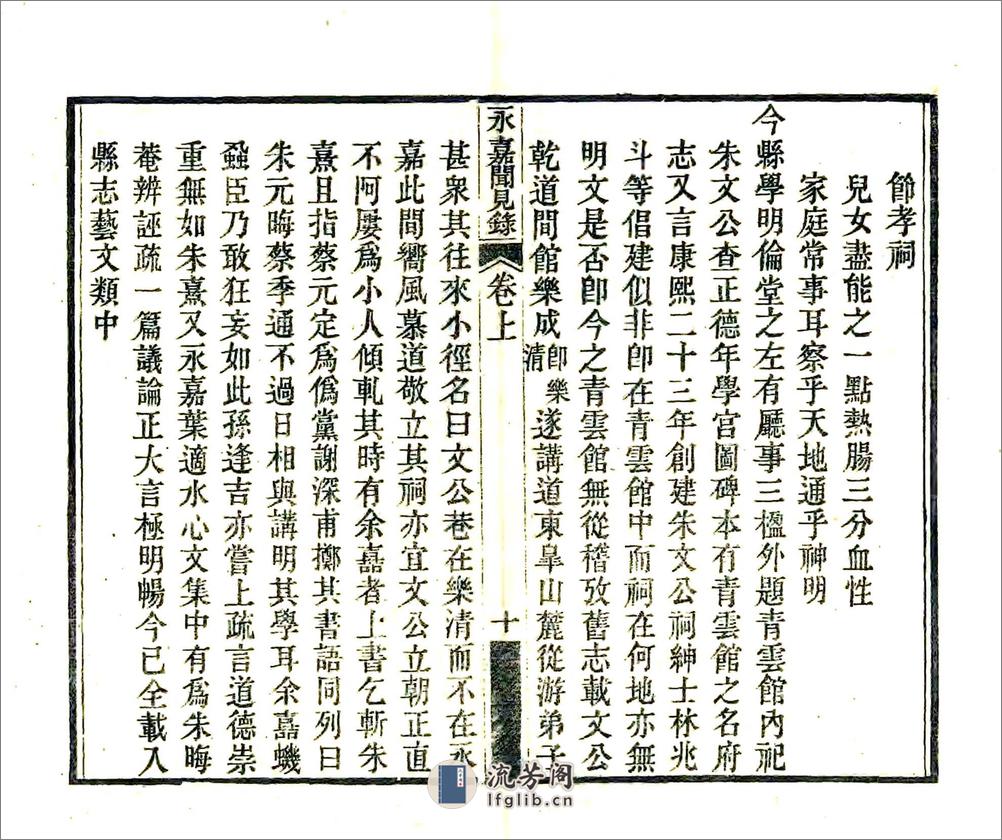 節孝祠
兒女盡能之一點熱腸三分血性
家庭常事耳察乎天地通乎神明
今縣學明倫堂之左有廳事三楹外題青雲館內祀
朱文公查正德年學宮圖碑本有青雲館之名府
志又言康熙二十三年創建朱文公祠紳士林兆
斗等倡建似非卽在青雲館中而祠在何地亦無
明文是否卽今之青雲館無從稽攷舊志載文公
乾道間館樂成卽樂清遂講道東臯山麓從游弟子
永嘉聞見錄 卷上 十
甚衆其往來小徑名曰文公巷在樂清而不在永
嘉此間嚮風慕道敬立其祠亦宜文公立朝正直
不阿屢爲小人傾軋其時有余嘉者上書乞斬朱
熹且指蔡元定爲僞黨謝深甫擲其書語同列曰
朱元晦蔡季通不過日相與講明其學耳余嘉蟣
蝨臣乃敢狂妄如此孫逢吉亦嘗上疏言道德崇
重無如朱熹又永嘉葉適水心文集中有爲朱晦
菴辨誣疏一篇議論正大言極明暢今已全載入
縣志藝文類中
流芳阁
lfglib.cn